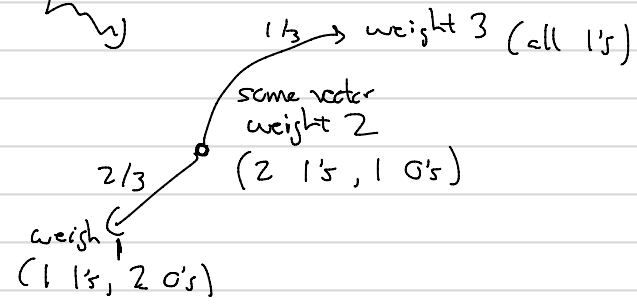 1/3 weight 3 (all 1's)
some vector
weight 2
2/3 (2 1's, 1 0's)
weigh 1
(1 1's, 2 0's)